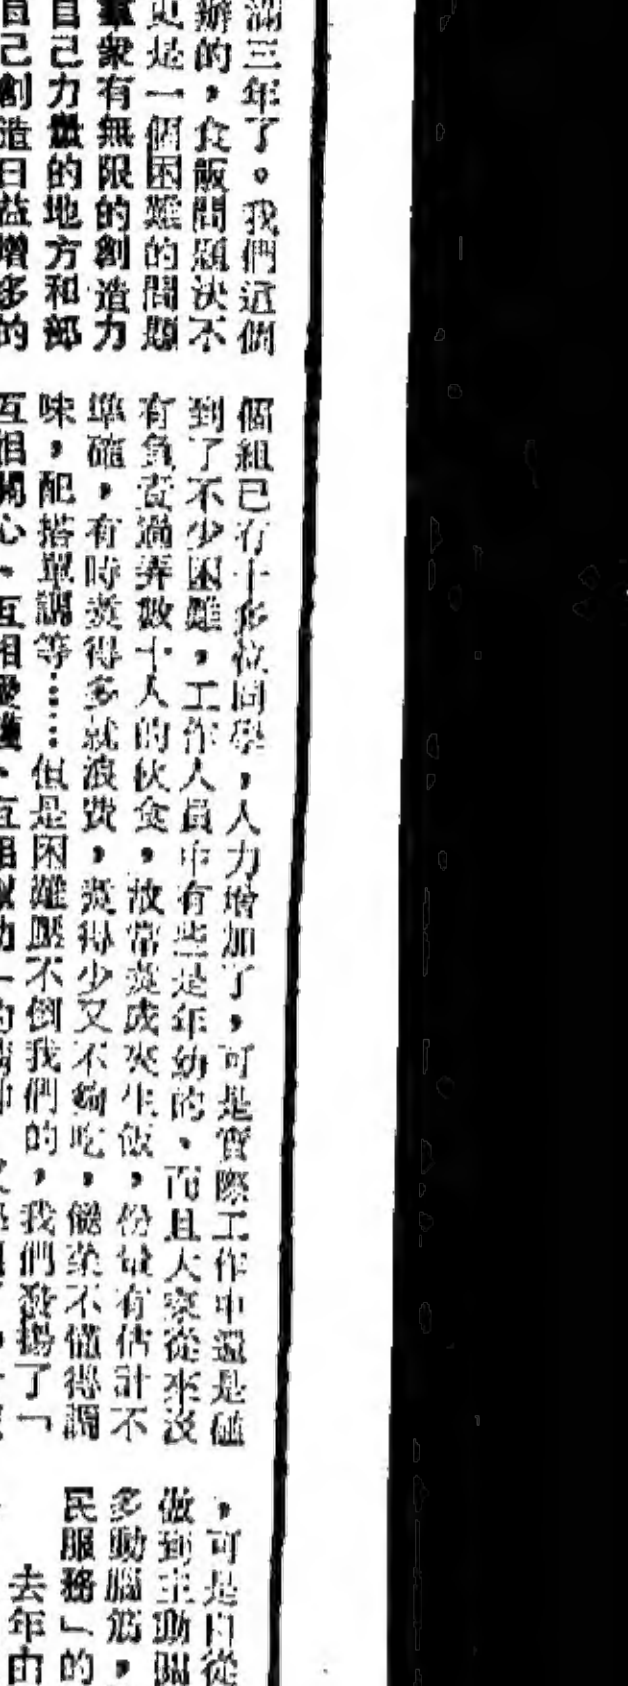 滿三年了。我們這個
辦的，食飯問題決不
更是一個困難的問題
羣衆有無限的創造力
自己力量的地方和部
自己創造日益增多的
個組已有十多位同學，人力增加了，可是實際工作中還是碰
到了不少困難，工作人員中有些是年幼的、而且大家從來沒
有負責過弄數十人的伙食，故常煑成夾生飯，份量有估計不
準確，有時煑得多就浪費，煑得少又不夠吃，餸菜不懂得調
味，配搭單調等……但是困難壓不倒我們的，我們發揚了「
互相關心、互相愛護、互相幫助」的精神
，可是自從
做到主動關
多動腦筋，
民服務」的
去年由